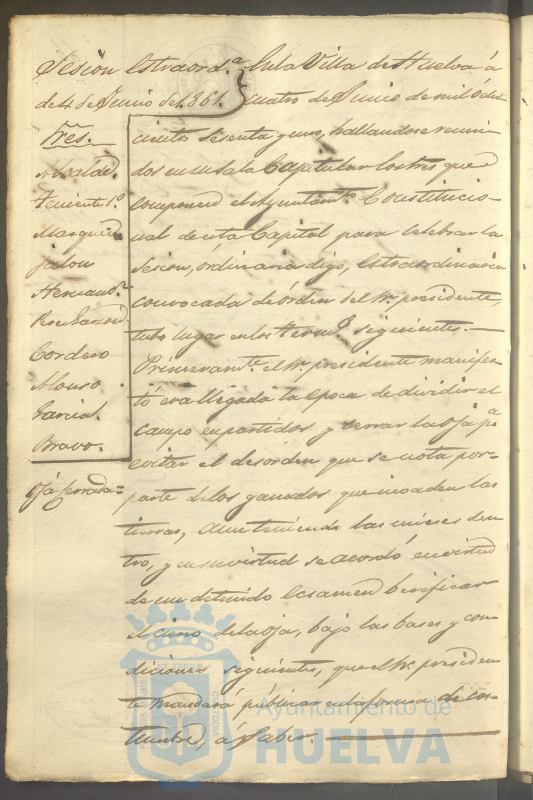 Sesion Estraord.ª En la Villa de Huelva á
de 4 de Junio de 1861. cuatro de Junio de mil ochoc
Sres.
Alcalde.
Teniente 1º
Marquez
Jalon
Hernand.z
Cordero
Alonso
Garcia.
Bravo.
Oja serrada=
cientos sesenta y uno, hallandose reuni-
dos en su Sala Capitular los Sres que
componen el Ayuntam.to Constitucio-
nal de esta Capital para celebrar la
Sesion, órdinaria digo, Estraordinaria
convocada de órden del Sr. presidente,
tubo lugar en los termi.s siguientes.—
Primeramte. el Sr. presidente manifes-
tó era llegada la época de dividir el
campo en partidos y cerrar la oja pª
evitar el desorden que se nota por-
parte de los ganados que invaden las
tierras, aun teniendo las mieses den-
tro, y en su virtud se acordó en virtud
de un detenido Ecsamen berificar
el cierro de la oja, bajo las bases y con-
diciones siguientes, que el Sr. presiden-
te mandará públicar en la forma de cos-
tumbre, á saber.
Ayuntamiento de
HUELVA